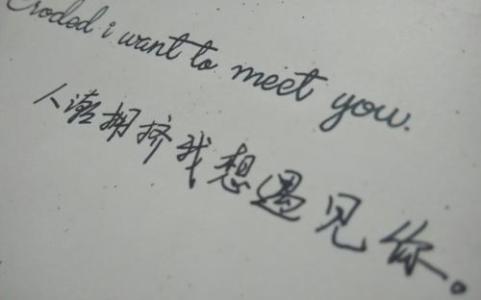 i want to meet you.
人潮拥挤我想遇见你。